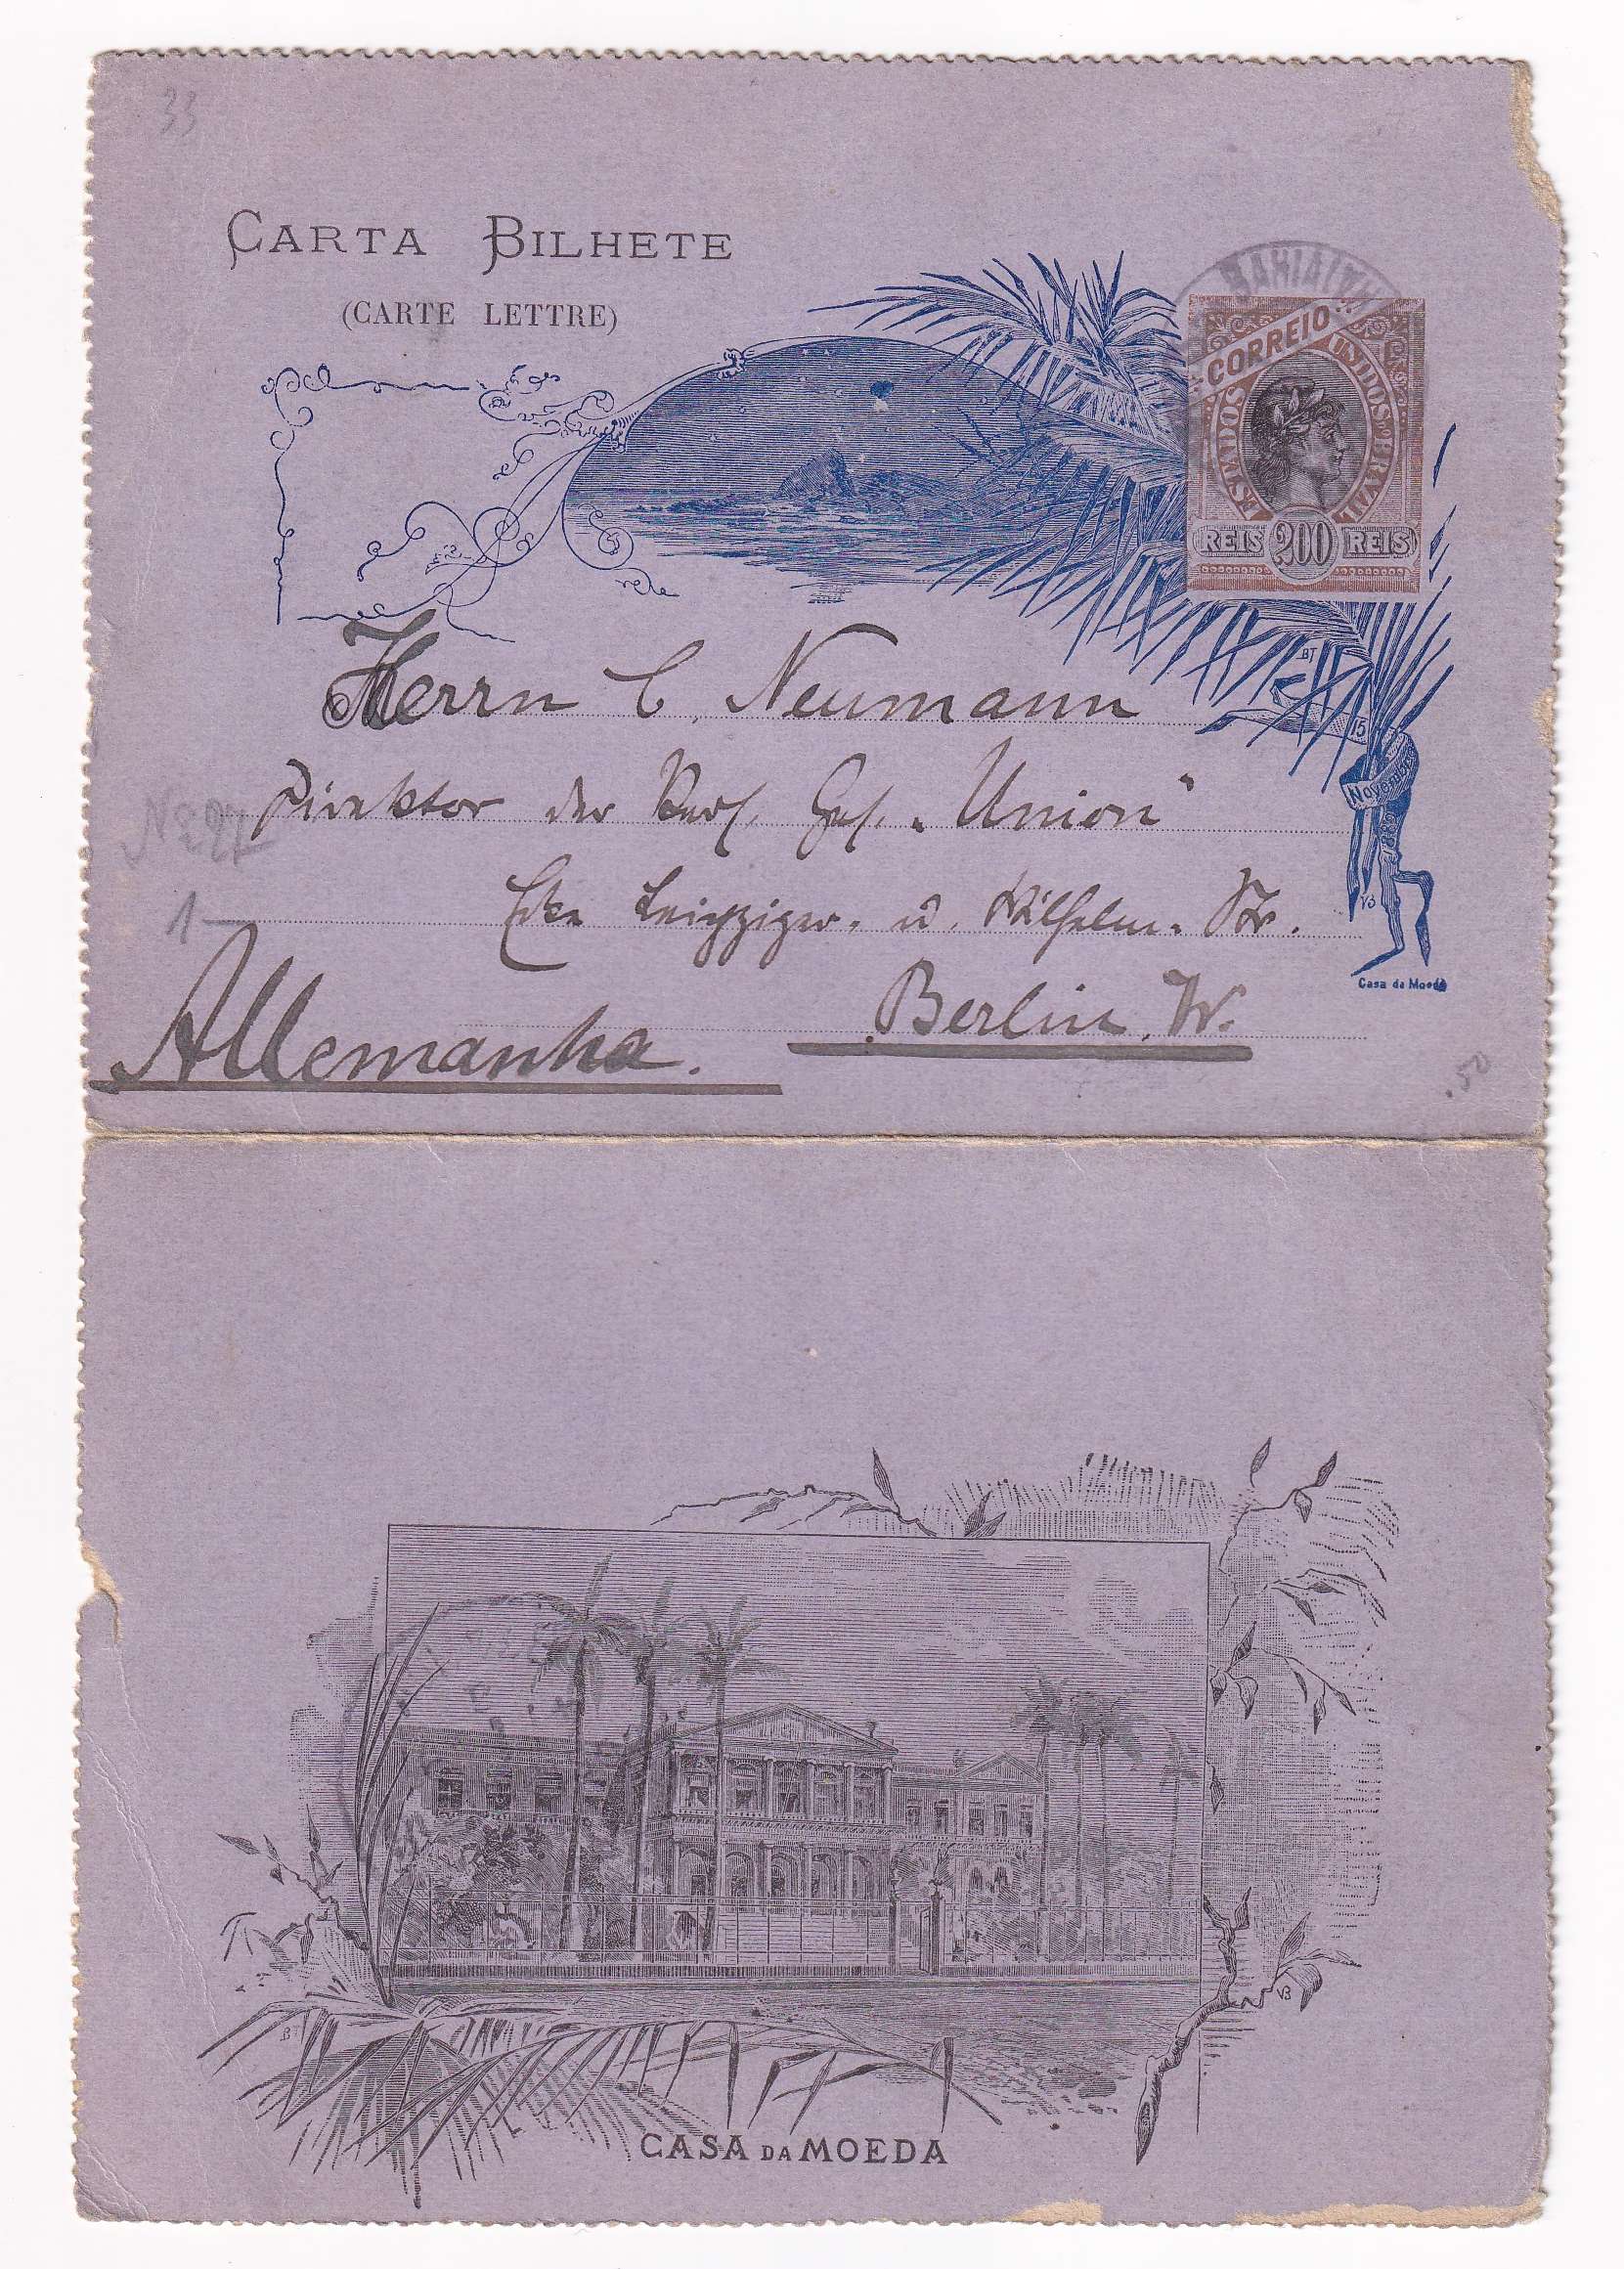 33
CARTA BILHETE
(CARTE LETTRE)
BAHIA
CORREIO
ESTADOS UNIDOS DO BRAZIL
REIS 200 REIS
BT
15
Novembro
VB
Casa da Moeda
Herrn C. Neumann
Direktor der Vers. Ges. „Union"
Ecke Leipziger- u. Wilhelm-Str.
Berlin, W.
Allemanha.
1-
.50
BT
VB
CASA DA MOEDA